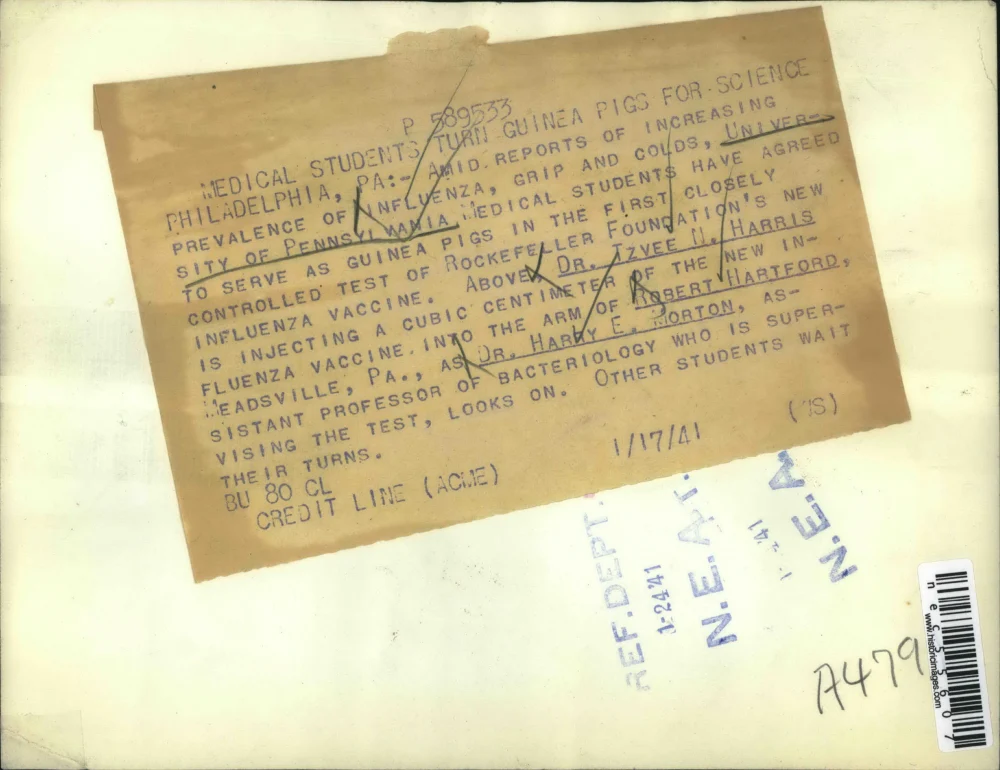 P 589533
MEDICAL STUDENTS TURN GUINEA PIGS FOR SCIENCE
PHILADELPHIA, PA:- AMID REPORTS OF INCREASING
PREVALENCE OF INFLUENZA, GRIP AND COLDS, UNIVER-
SITY OF PENNSYLVANIA MEDICAL STUDENTS HAVE AGREED
TO SERVE AS GUINEA PIGS IN THE FIRST CLOSELY
CONTROLLED TEST OF ROCKEFELLER FOUNDATION'S NEW
INFLUENZA VACCINE. ABOVE, DR. TZVEE N. HARRIS
IS INJECTING A CUBIC CENTIMETER OF THE NEW IN-
FLUENZA VACCINE INTO THE ARM OF ROBERT HARTFORD,
MEADSVILLE, PA., AS DR. HARRY E. MORTON, AS-
SISTANT PROFESSOR OF BACTERIOLOGY WHO IS SUPER-
VISING THE TEST, LOOKS ON. OTHER STUDENTS WAIT
THEIR TURNS.
BU 80 CL 1/17/41 (MS)
CREDIT LINE (ACME)
REF. DEPT.
1-24-41
N.E.A.
41
N.E.A
A479
nec55607
www.historicimages.com